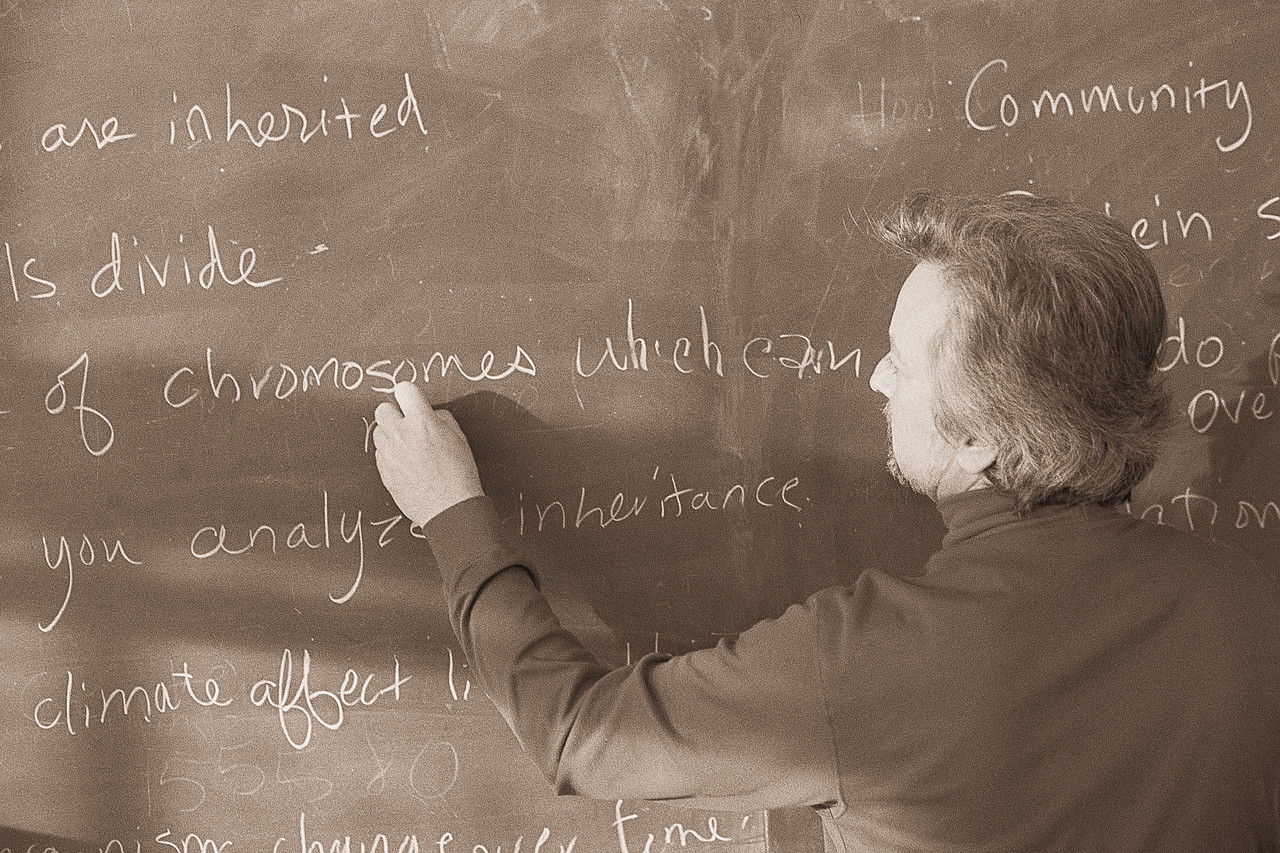 are inherited
ls divide
of chromosomes which can
you analyze inheritance
climate affect
change over time.
Community
ein s
do
Ove
ation